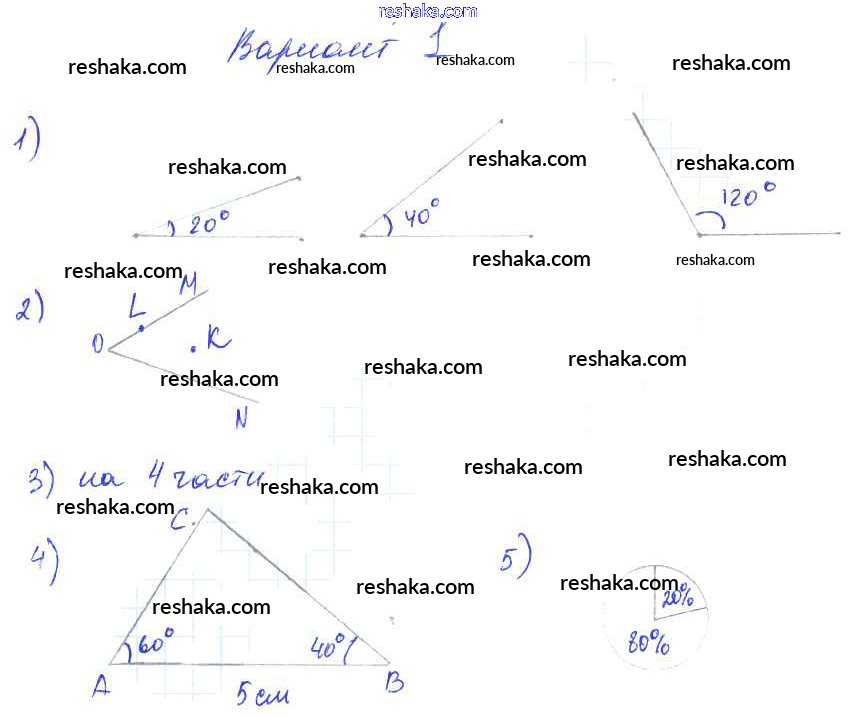 reshaka.com
Вариант 1
reshaka.com reshaka.com reshaka.com reshaka.com
1)
reshaka.com reshaka.com reshaka.com
20° 40° 120°
reshaka.com reshaka.com reshaka.com reshaka.com
2)
M
L
O K
reshaka.com reshaka.com reshaka.com
N
3) на 4 части
reshaka.com reshaka.com reshaka.com reshaka.com
C
4) 5)
reshaka.com reshaka.com reshaka.com
20%
60° 40° 80%
A B
5 см